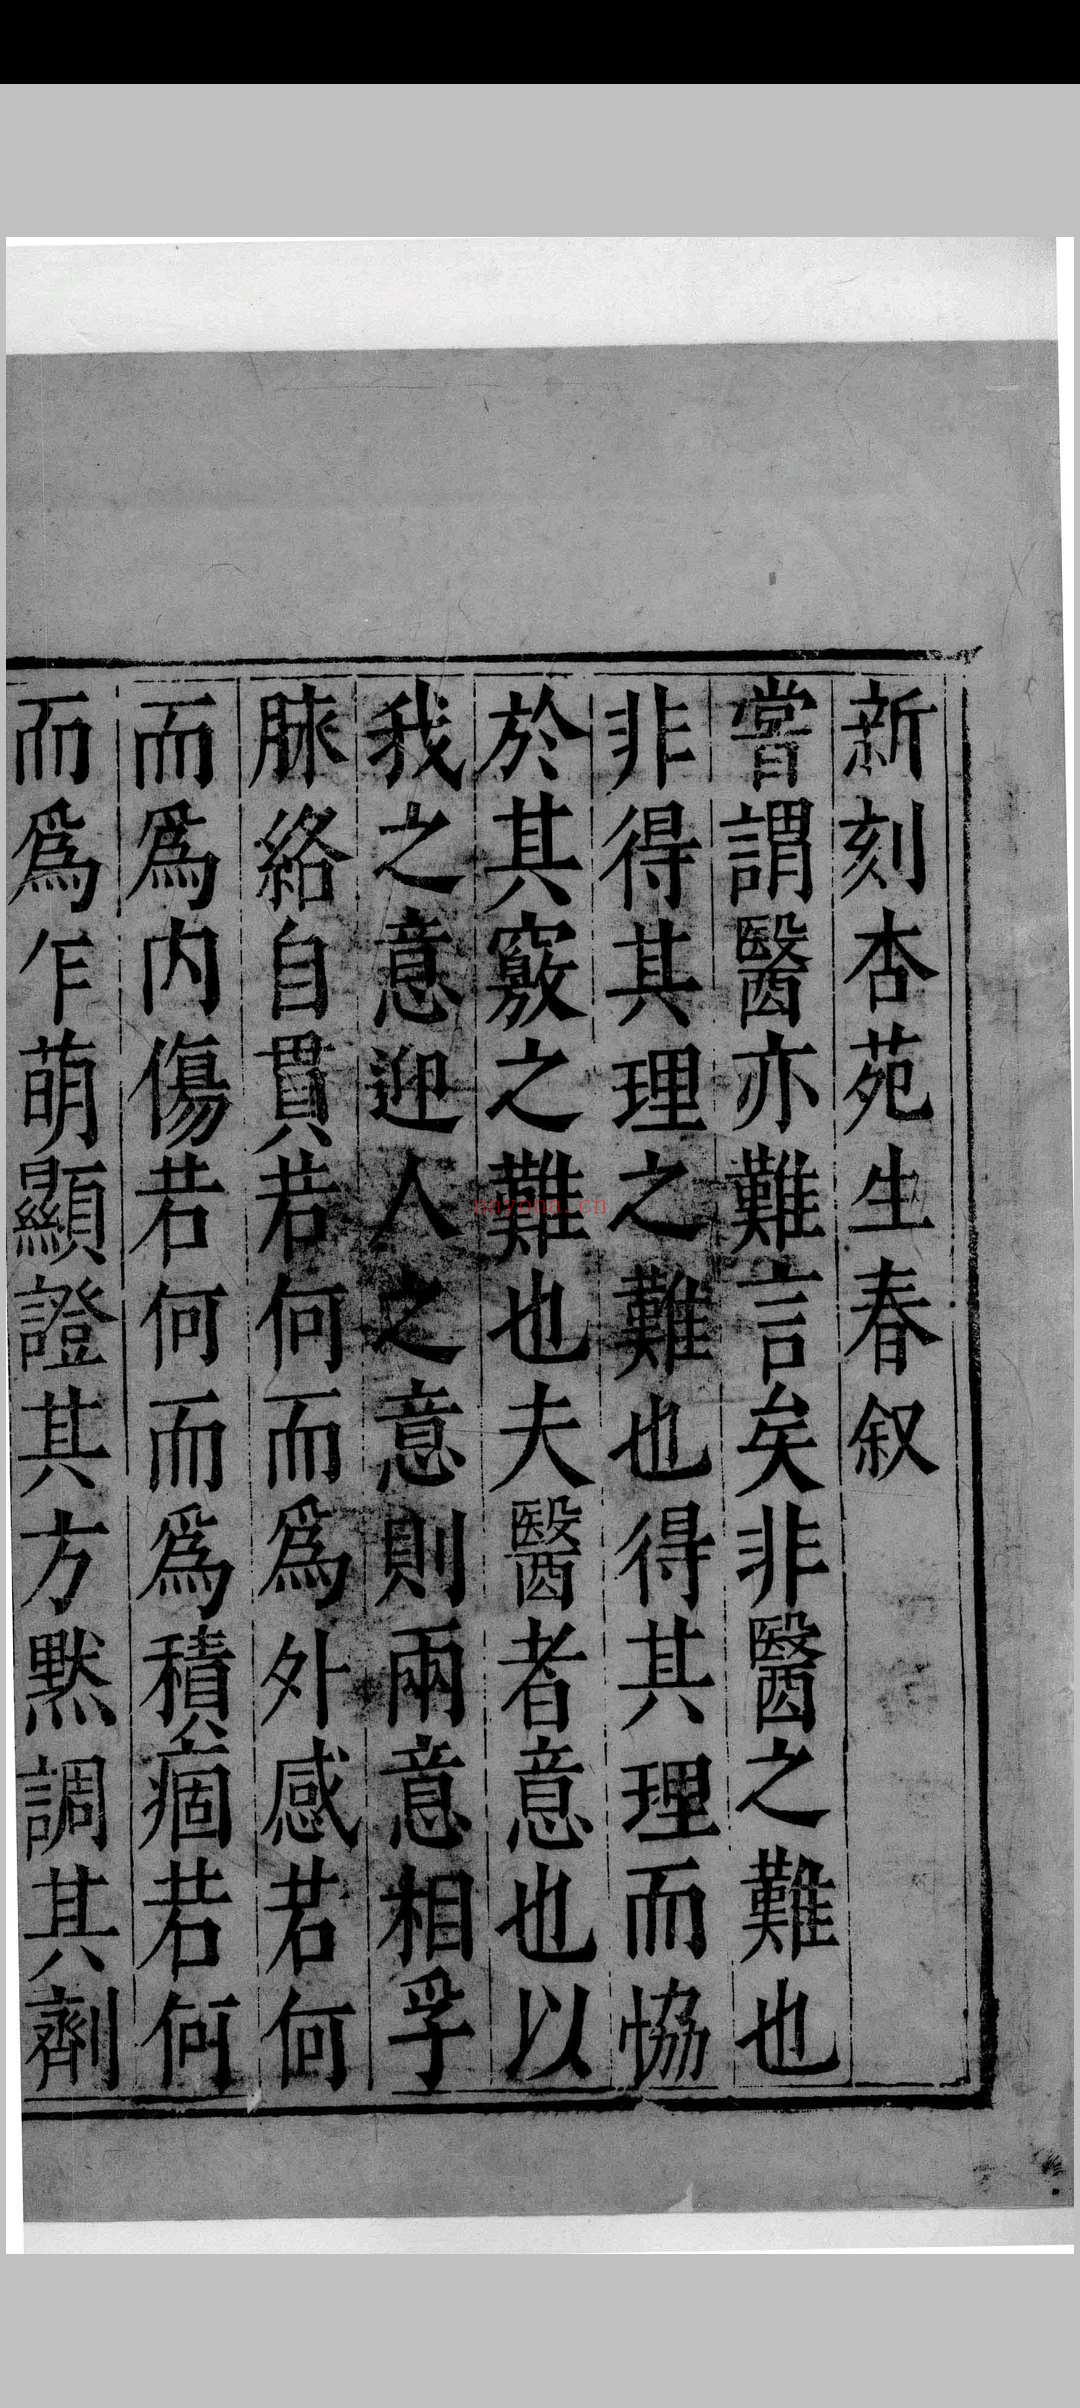 新刻杏苑生春叙
嘗謂醫亦難言矣非醫之難也
非得其理之難也得其理而恊
於其竅之難也夫醫者意也以
我之意迎人之意則兩意相孚
脉絡自貫若何而爲外感若何
而爲内傷若何而爲積痼若何
而爲乍萌顯證其方黙調其劑
nayona.cn